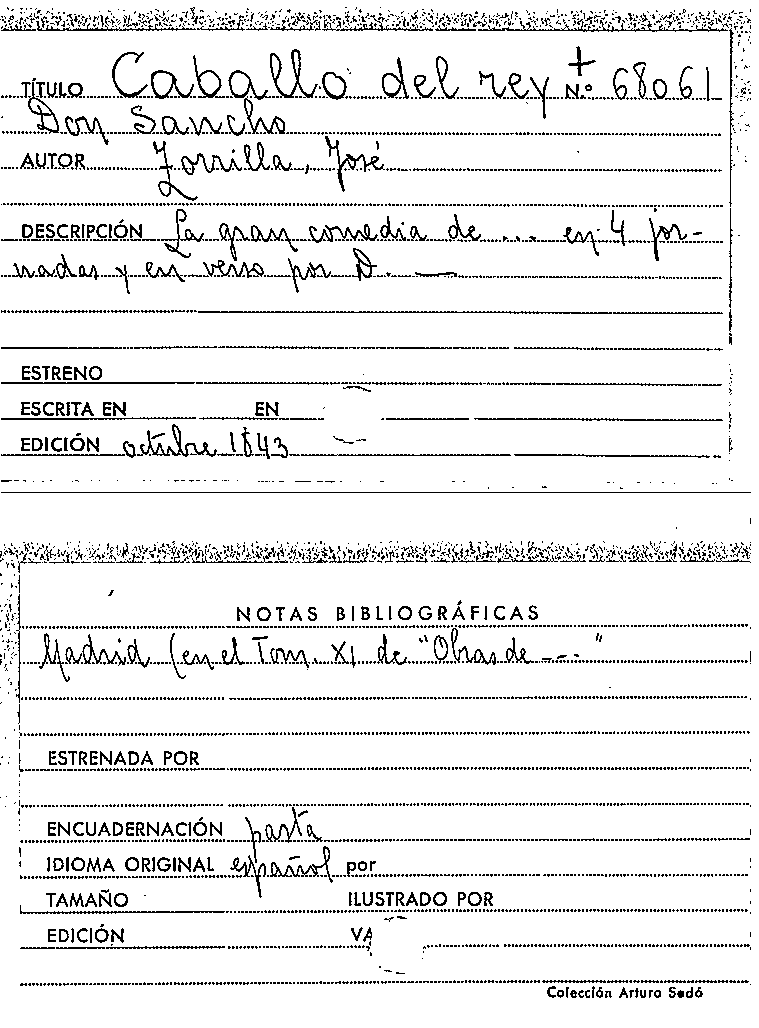 TÍTULO Caballo del rey + N.º 68061
Don Sancho
AUTOR Zorrilla, José
DESCRIPCIÓN La gran comedia de ... en 4 jor-
nadas y en verso por D. —
ESTRENO
ESCRITA EN EN
EDICIÓN octubre 1843
NOTAS BIBLIOGRÁFICAS
Madrid (en el Tom. XI de "Obras de ---"
ESTRENADA POR
ENCUADERNACIÓN pasta
IDIOMA ORIGINAL español por
TAMAÑO ILUSTRADO POR
EDICIÓN VA
Colección Arturo Sedó